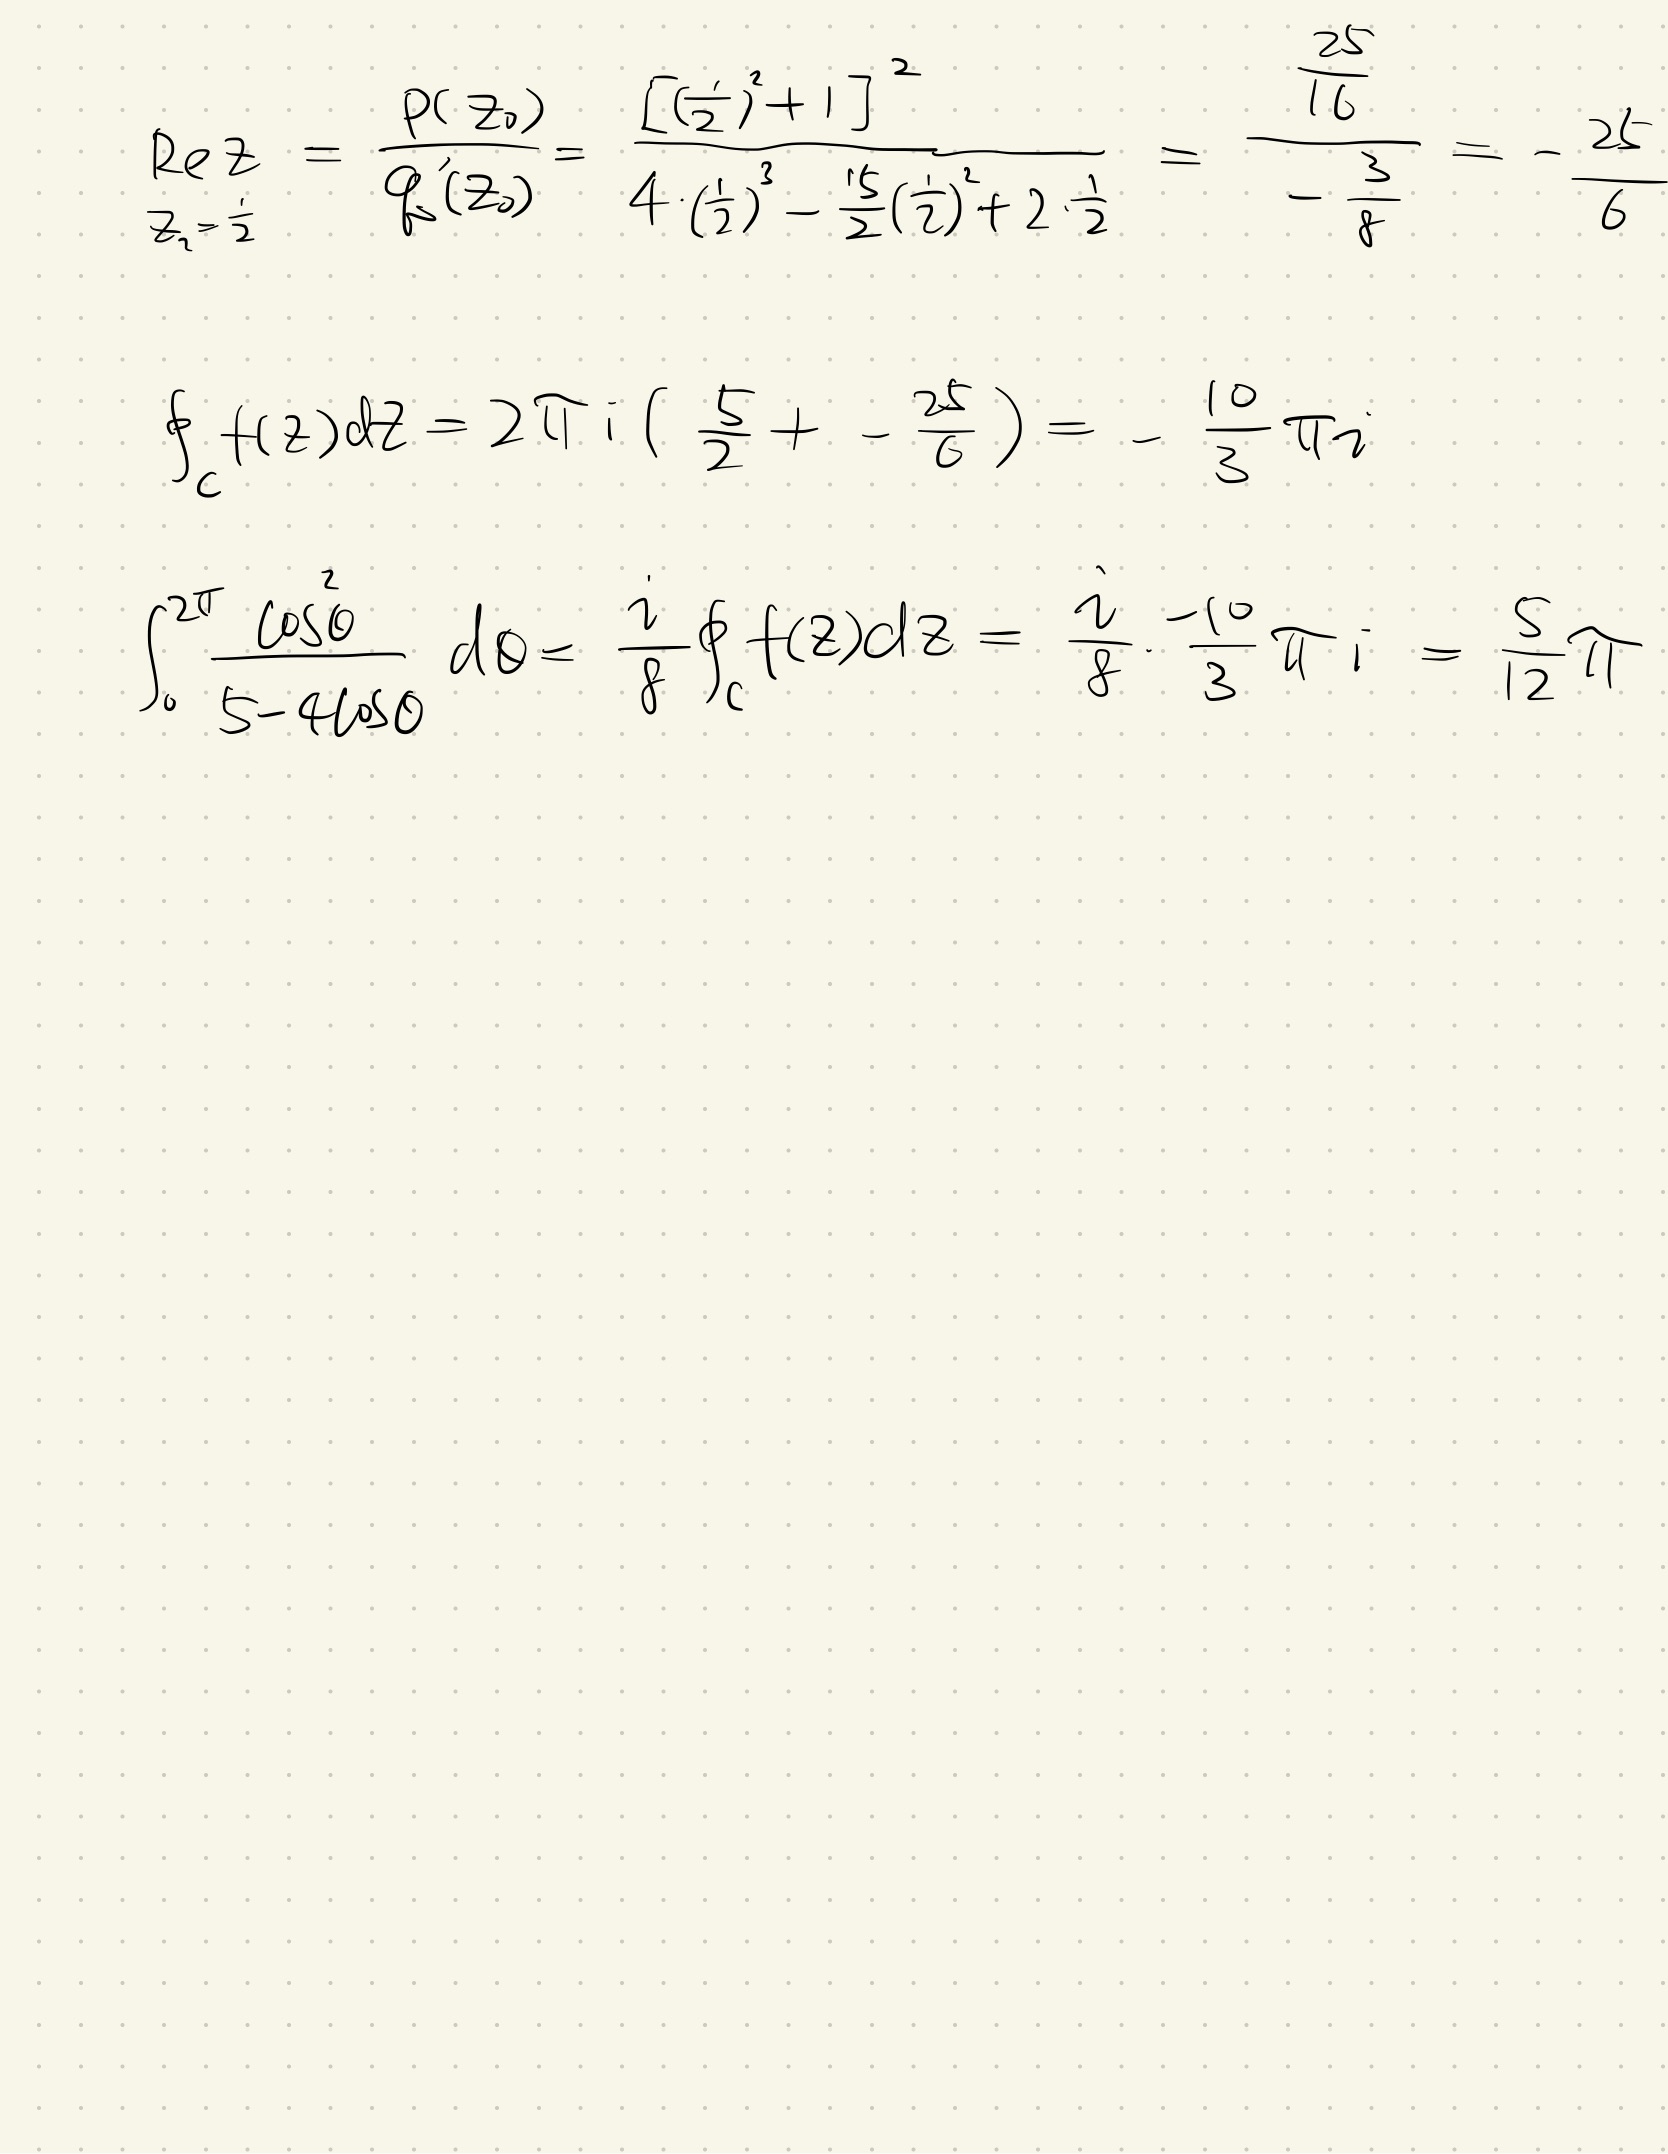 Re z = p(z₀)/q'(z₀) = [(1/2)² + 1]² / (4·(1/2)³ - 15/2(1/2)² + 2·1/2) = (25/16)/(-3/8) = -25/6
z₂ = 1/2
∮_C f(z)dz = 2πi(5/2 + -25/6) = -10/3 πi
∫₀^2π cos²θ/(5-4cosθ) dθ = i/8 ∮_C f(z)dz = i/8 · -10/3 πi = 5/12 π